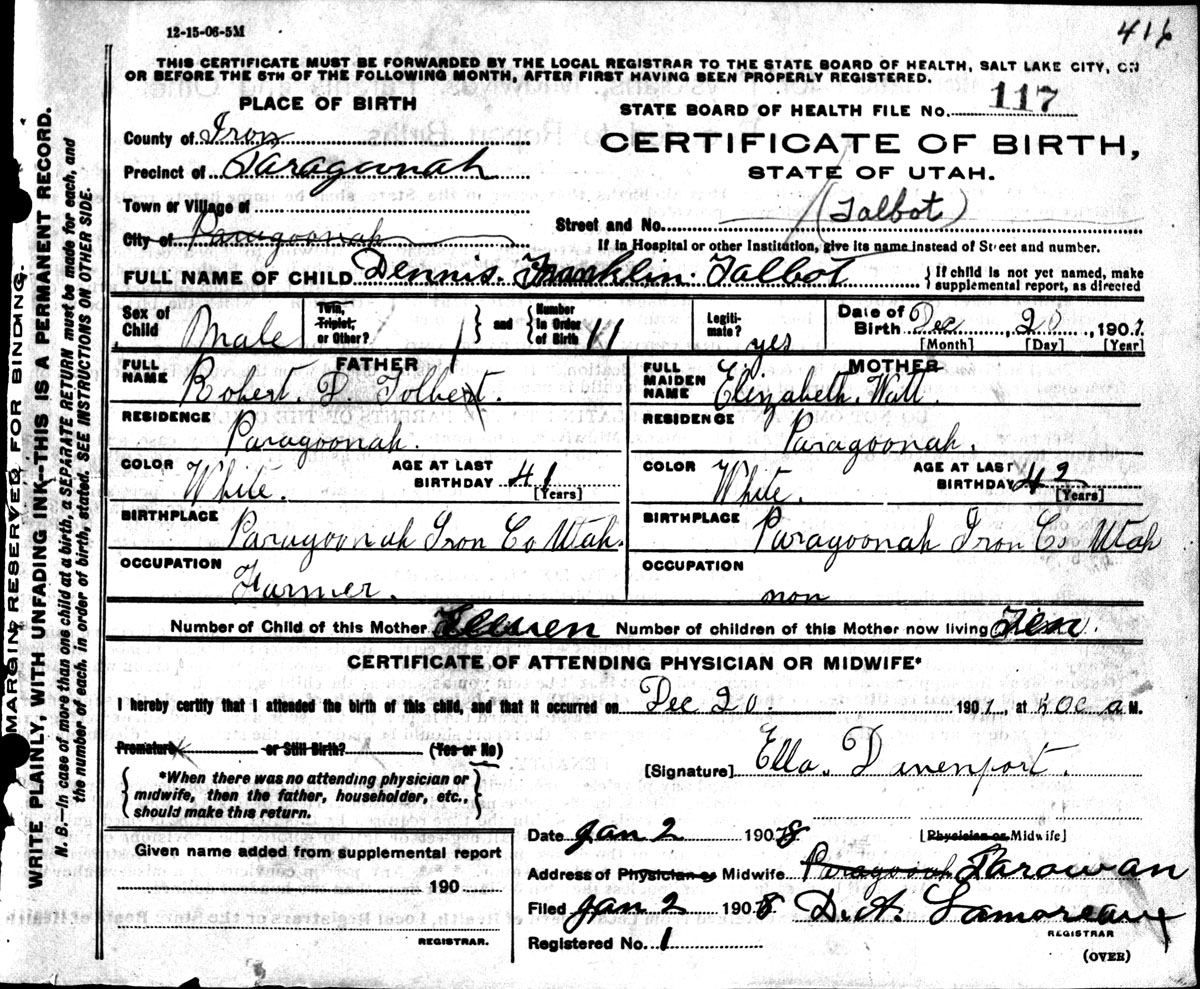 12-15-06-5M
416
THIS CERTIFICATE MUST BE FORWARDED BY THE LOCAL REGISTRAR TO THE STATE BOARD OF HEALTH, SALT LAKE CITY, ON
OR BEFORE THE 5TH OF THE FOLLOWING MONTH, AFTER FIRST HAVING BEEN PROPERLY REGISTERED.
PLACE OF BIRTH
STATE BOARD OF HEALTH FILE No. 117
County of Iron
CERTIFICATE OF BIRTH,
Precinct of Paragoonah
STATE OF UTAH.
Town or Village of
(Talbot)
Street and No.
City of Paragoonah
If in Hospital or other Institution, give its name instead of Street and number.
FULL NAME OF CHILD Dennis. Franklin. Talbot
If child is not yet named, make supplemental report, as directed
Sex of Child Male
Twin, Triplet, or Other? 1 and Number in Order of Birth 11
Legitimate? yes
Date of Birth Dec 20, 1907
[Month] [Day] [Year]
FATHER
FULL NAME Robert. D. Tolbert.
MOTHER
FULL MAIDEN NAME Elizabeth. Watt
RESIDENCE Paragoonah.
RESIDENCE Paragoonah.
COLOR White. AGE AT LAST BIRTHDAY 41 [Years]
COLOR White. AGE AT LAST BIRTHDAY 42 [Years]
BIRTHPLACE Paragoonah Iron Co Utah.
BIRTHPLACE Paragoonah Iron Co Utah
OCCUPATION Farmer.
OCCUPATION non
Number of Child of this Mother Eleven Number of children of this Mother now living Ten.
CERTIFICATE OF ATTENDING PHYSICIAN OR MIDWIFE*
I hereby certify that I attended the birth of this child, and that it occurred on Dec 20. 1907, at a M.
Premature or Still Birth? (Yes or No)
*When there was no attending physician or
midwife, then the father, householder, etc.,
should make this return.
[Signature] Ella. Davenport.
Date Jan 2 1908 [Physician or Midwife]
Given name added from supplemental report
190
REGISTRAR.
Address of Physician or Midwife Paragoonah Parowan
Filed Jan 2 1908 D.A. Lamoreaux
REGISTRAR
Registered No. 1
(OVER)
MARGIN RESERVED FOR BINDING.
WRITE PLAINLY, WITH UNFADING INK—THIS IS A PERMANENT RECORD.
N. B.—In case of more than one child at a birth, a SEPARATE RETURN must be made for each, and
the number of each, in order of birth, stated. SEE INSTRUCTIONS ON OTHER SIDE.